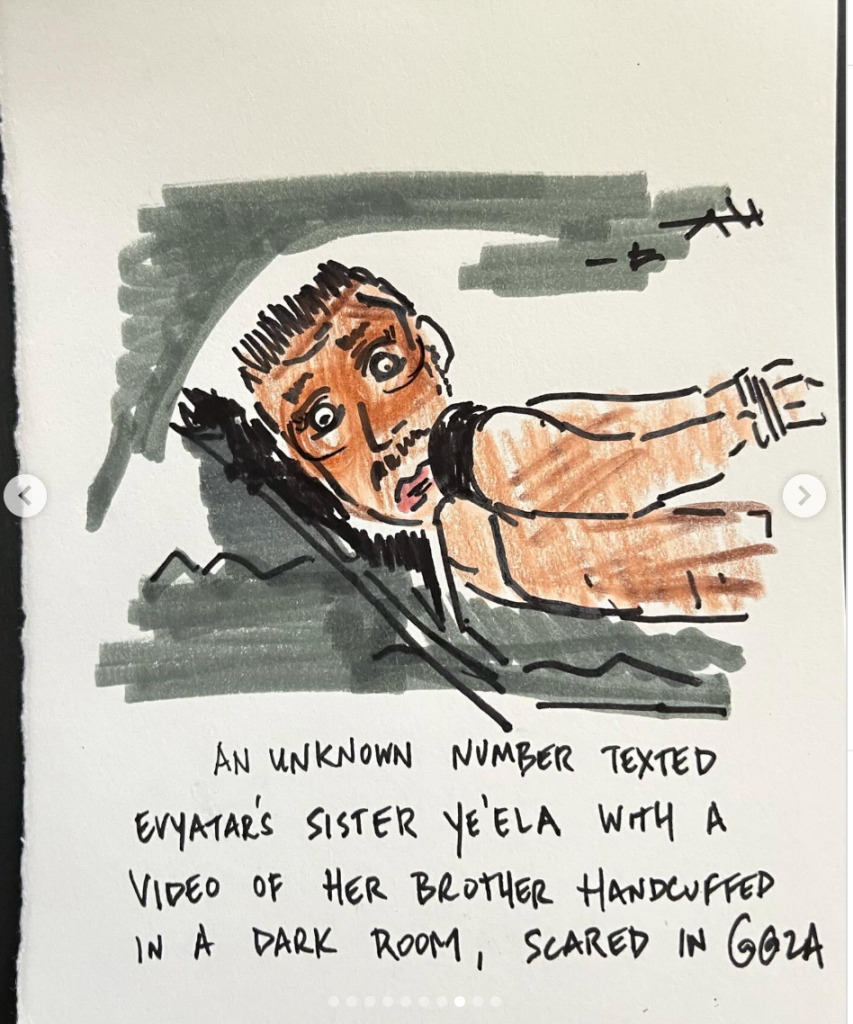 AN UNKNOWN NUMBER TEXTED
EVYATAR'S SISTER YE'ELA WITH A
VIDEO OF HER BROTHER HANDCUFFED
IN A DARK ROOM, SCARED IN G@ZA